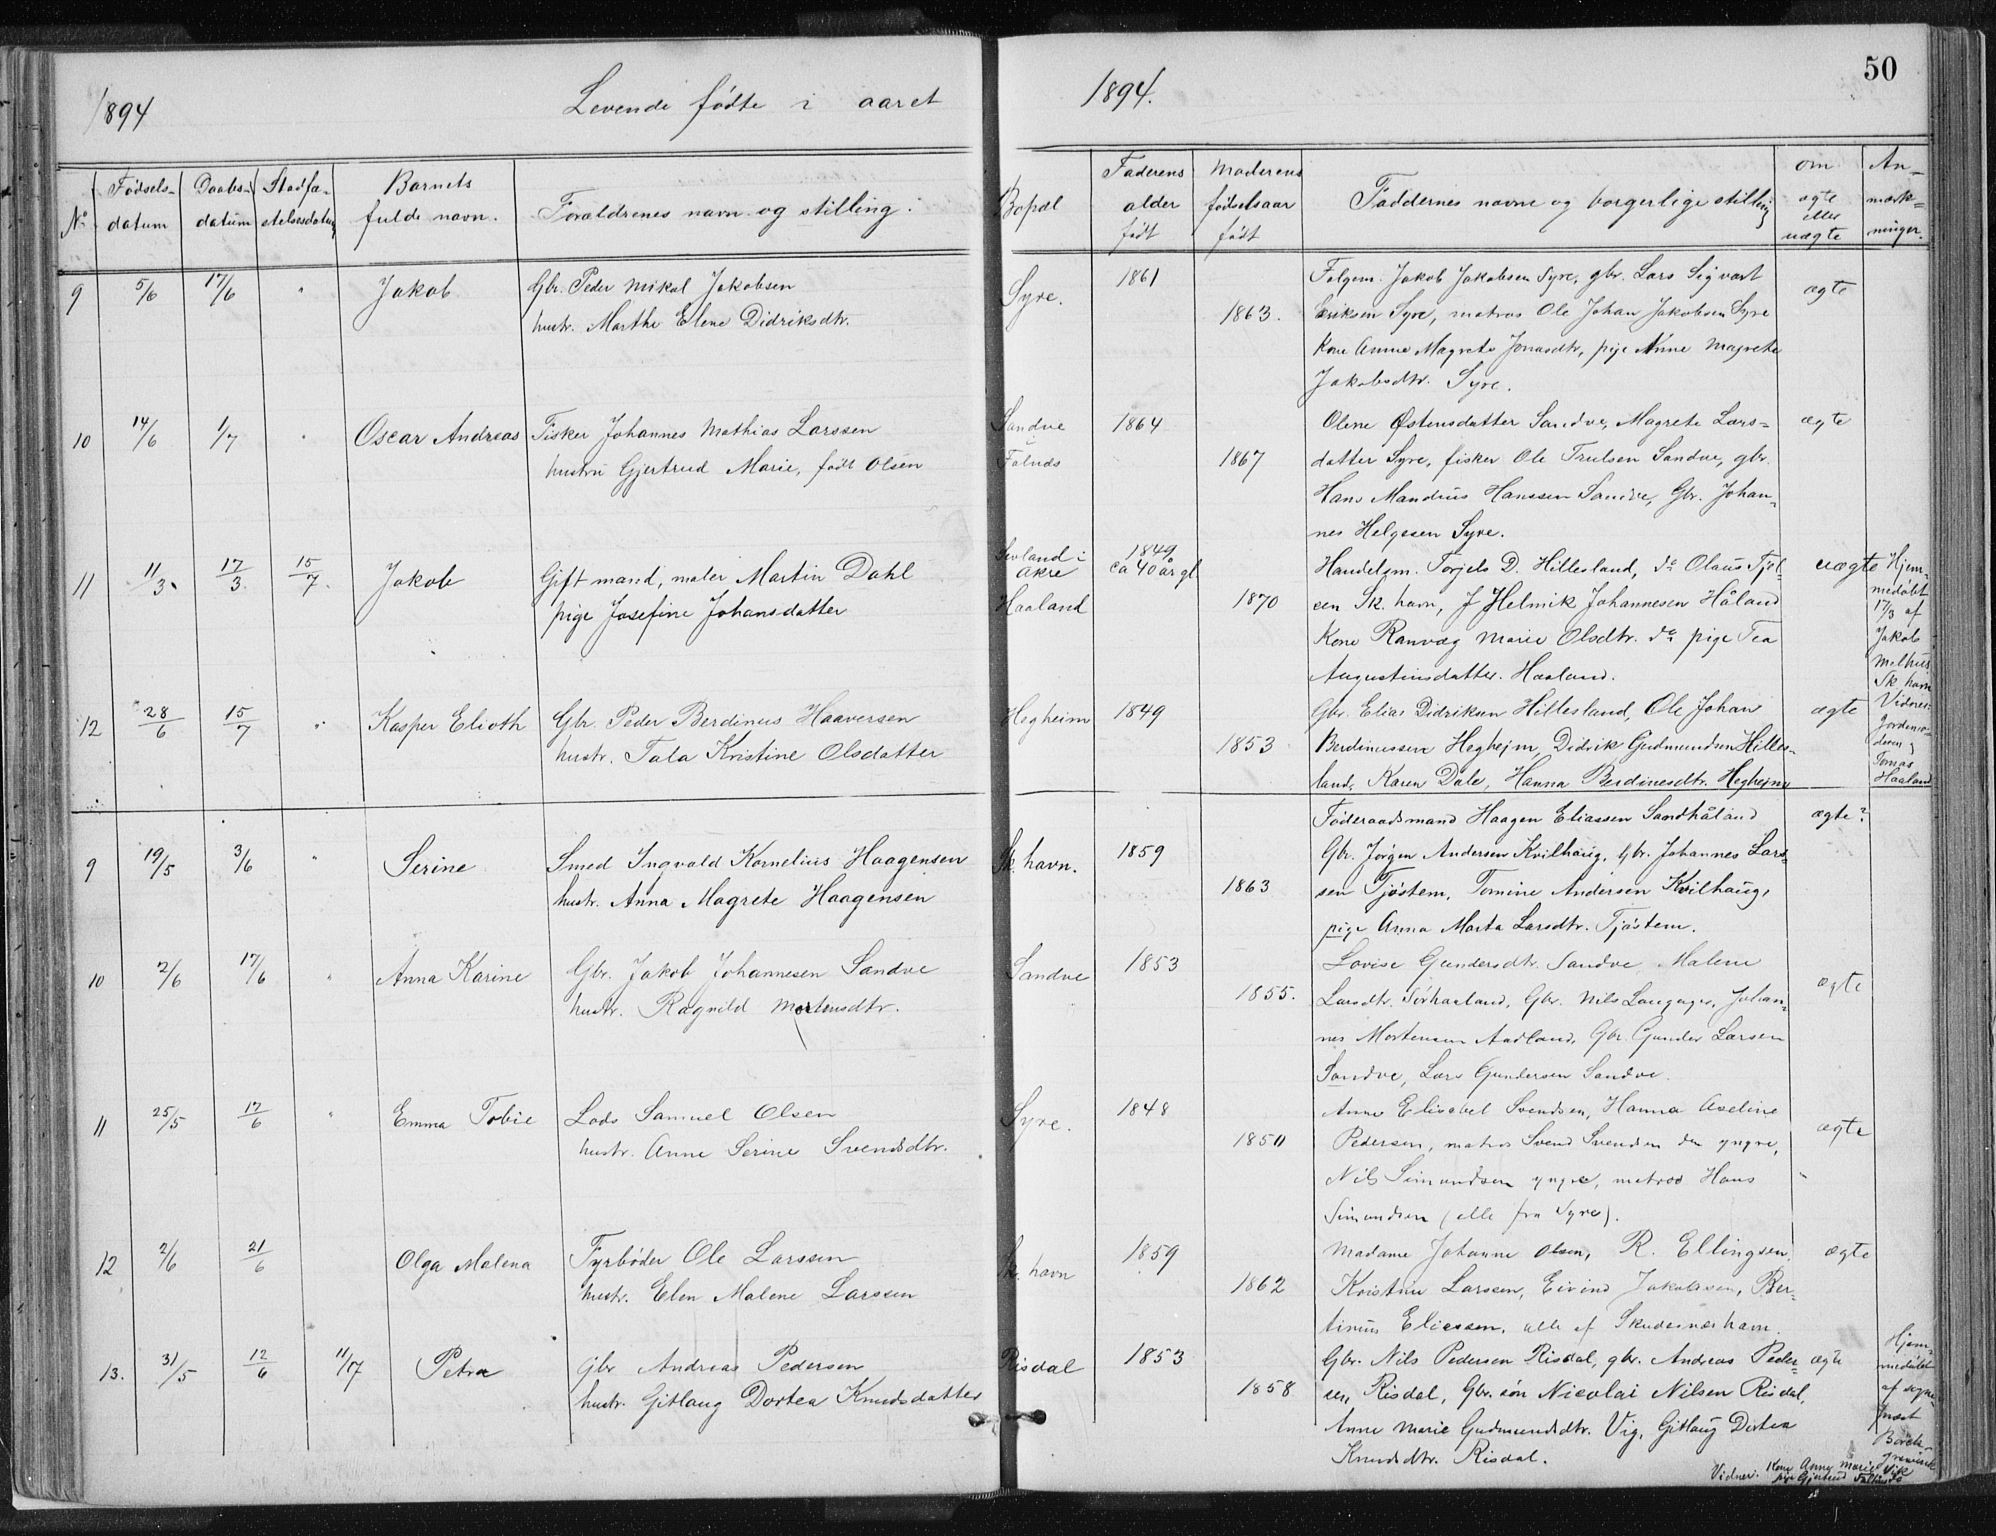 50
1894
Levende fødte i aaret
1894.
No
Fødsels-
datum
Daabs-
datum
Stadfæ-
stelsesdatum
Barnets
fulde navn.
Forældrenes navn og stilling.
Bopæl
Faderens
alder
født
Moderens
fødselsaar
født
Faddernes navne og borgerlige stilling
om
ægte
eller
uægte
An-
mærk-
ninger.
9
5/6
17/6
"
Jakob
Gbr. Peder Mikal Jakobsen
hustr. Marthe Elene Didriksdtr.
Syre.
1861
1863.
Folgem. Jakob Jakobsen Syre, gbr. Lars Sigvart
Eriksen Syre, matros Ole Johan Jakobsen Syre
Kone Anne Magrete Jonasdtr, pige Anne Magrete
Jakobsdtr. Syre.
ægte
10
14/6
1/7
"
Oscar Andreas
Fisker Johannes Mathias Larssen
hustru Gjertrud Marie, født Olsen
Sandve
Falnds
1864
1867
Olene Østensdatter Sandve, Magrete Lars-
datter Syre, fisker Ole Trulsen Sandve, gbr.
Hans Mandius Hanssen Sandve, Gbr. Johan-
nes Helgesen Syre.
ægte
11
11/3.
17/3.
15/7.
Jakob
Gift mand, maler Martin Dahl
pige Josefine Johansdatter
Sevland i
Akre
Haaland
1849
ca 40 år gl
1870
Handelsm. Torjels D. Hillesland, do Olaus Tjøl-
sen Sk. havn, J Helmik Johannesen Håland
Kone Ranvæg Marie Olsdtr. do pige Tea
Augustinsdatter. Haaland.
uægte
Hjem-
medøbt
17/3 af
Jakob
Melhus
Sk havn
Vidner:
Jordemo-
deren,
Tomas
Haaland
12
28/6
15/7
"
Kasper Elioth
Gbr. Peder Berdinus Haaversen
hustr. Tala Kristine Olsdatter
Hegheim
1849
1853
Gbr. Elias Didriksen Hillesland, Ole Johan
Berdinussen Hegheim, Didrik Gudmundsen Hilles-
land, Karen Dale, Hanna Berdinesdtr. Hegheim
ægte
9
19/5
3/6
"
Serine
Smed Ingvald Kornelius Haagensen
hustr. Anna Magrete Haagensen
Sk. havn.
1859
1863
Føderaadsmand Haagen Eliassen Sandhåland
Gbr. Jørgen Andersen Kvilhaug, Gbr. Johannes Lars-
sen Tjøstem, Tomine Andersen Kvilhaug,
pige Anna Marta Larsdtr. Tjøstem.
ægte?
10
2/6
17/6
"
Anna Karine
Gbr. Jakob Johannesen Sandve
hustr. Ragnild Mortensdtr.
Sandve
1853
1855.
Lovise Gundersdtr. Sandve Malene
Larsdtr. Sørhaaland, Gbr. Nils Langager, Johan-
nes Mortensen Aadland, Gbr. Gunder Larsen
Sandve, Lars Gundersen Sandve.
ægte
11
25/5
17/6
"
Emma Tobie
Lods Samuel Olsen
hustr. Anne Serine Svendsdtr.
Syre.
1848
1850
Anne Elisabet Svendsen, Hanna Aseline
Pedersen, matros Svend Svendsen den yngre,
Nils Simundsen yngre, matros Hans
Simundsen (alle fra Syre).
ægte
12
2/6
21/6
Olga Malena
Fyrbøder Ole Larssen
hustr. Elen Malene Larssen
Sk. havn
1859
1862
Madame Johanne Olsen, R. Ellingsen,
Kristine Larssen, Eivind Jakobssen, Ber-
tinius Eliassen, alle af Skudesneshavn.
ægte
13.
31/5
12/6
11/17
Petra
gbr Andreas Pedersen
hustr. Gitlaug Dortea Knudsdatter
Risdal
1853
1858
Gbr. Nils Pedersen Risdal, gbr. Andreas Peder-
sen, Risdal, Gbr. søn Nicolai Nilsen Risdal,
Anne Marie Gudmundsdtr. Vig, Gitlaug Dortea
Knudsdtr. Risdal.
ægte
Hjem-
medøbt
af sogne-
præst
Borch-
grevink
Vidner: Kone Anne Marie Vik
pige Gjertrud